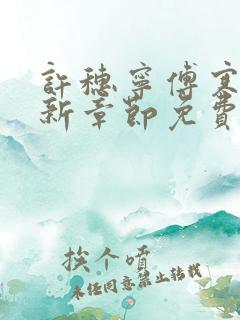 許穗寧傅寒
新章節免費
挨个啃
未任同意禁止转载